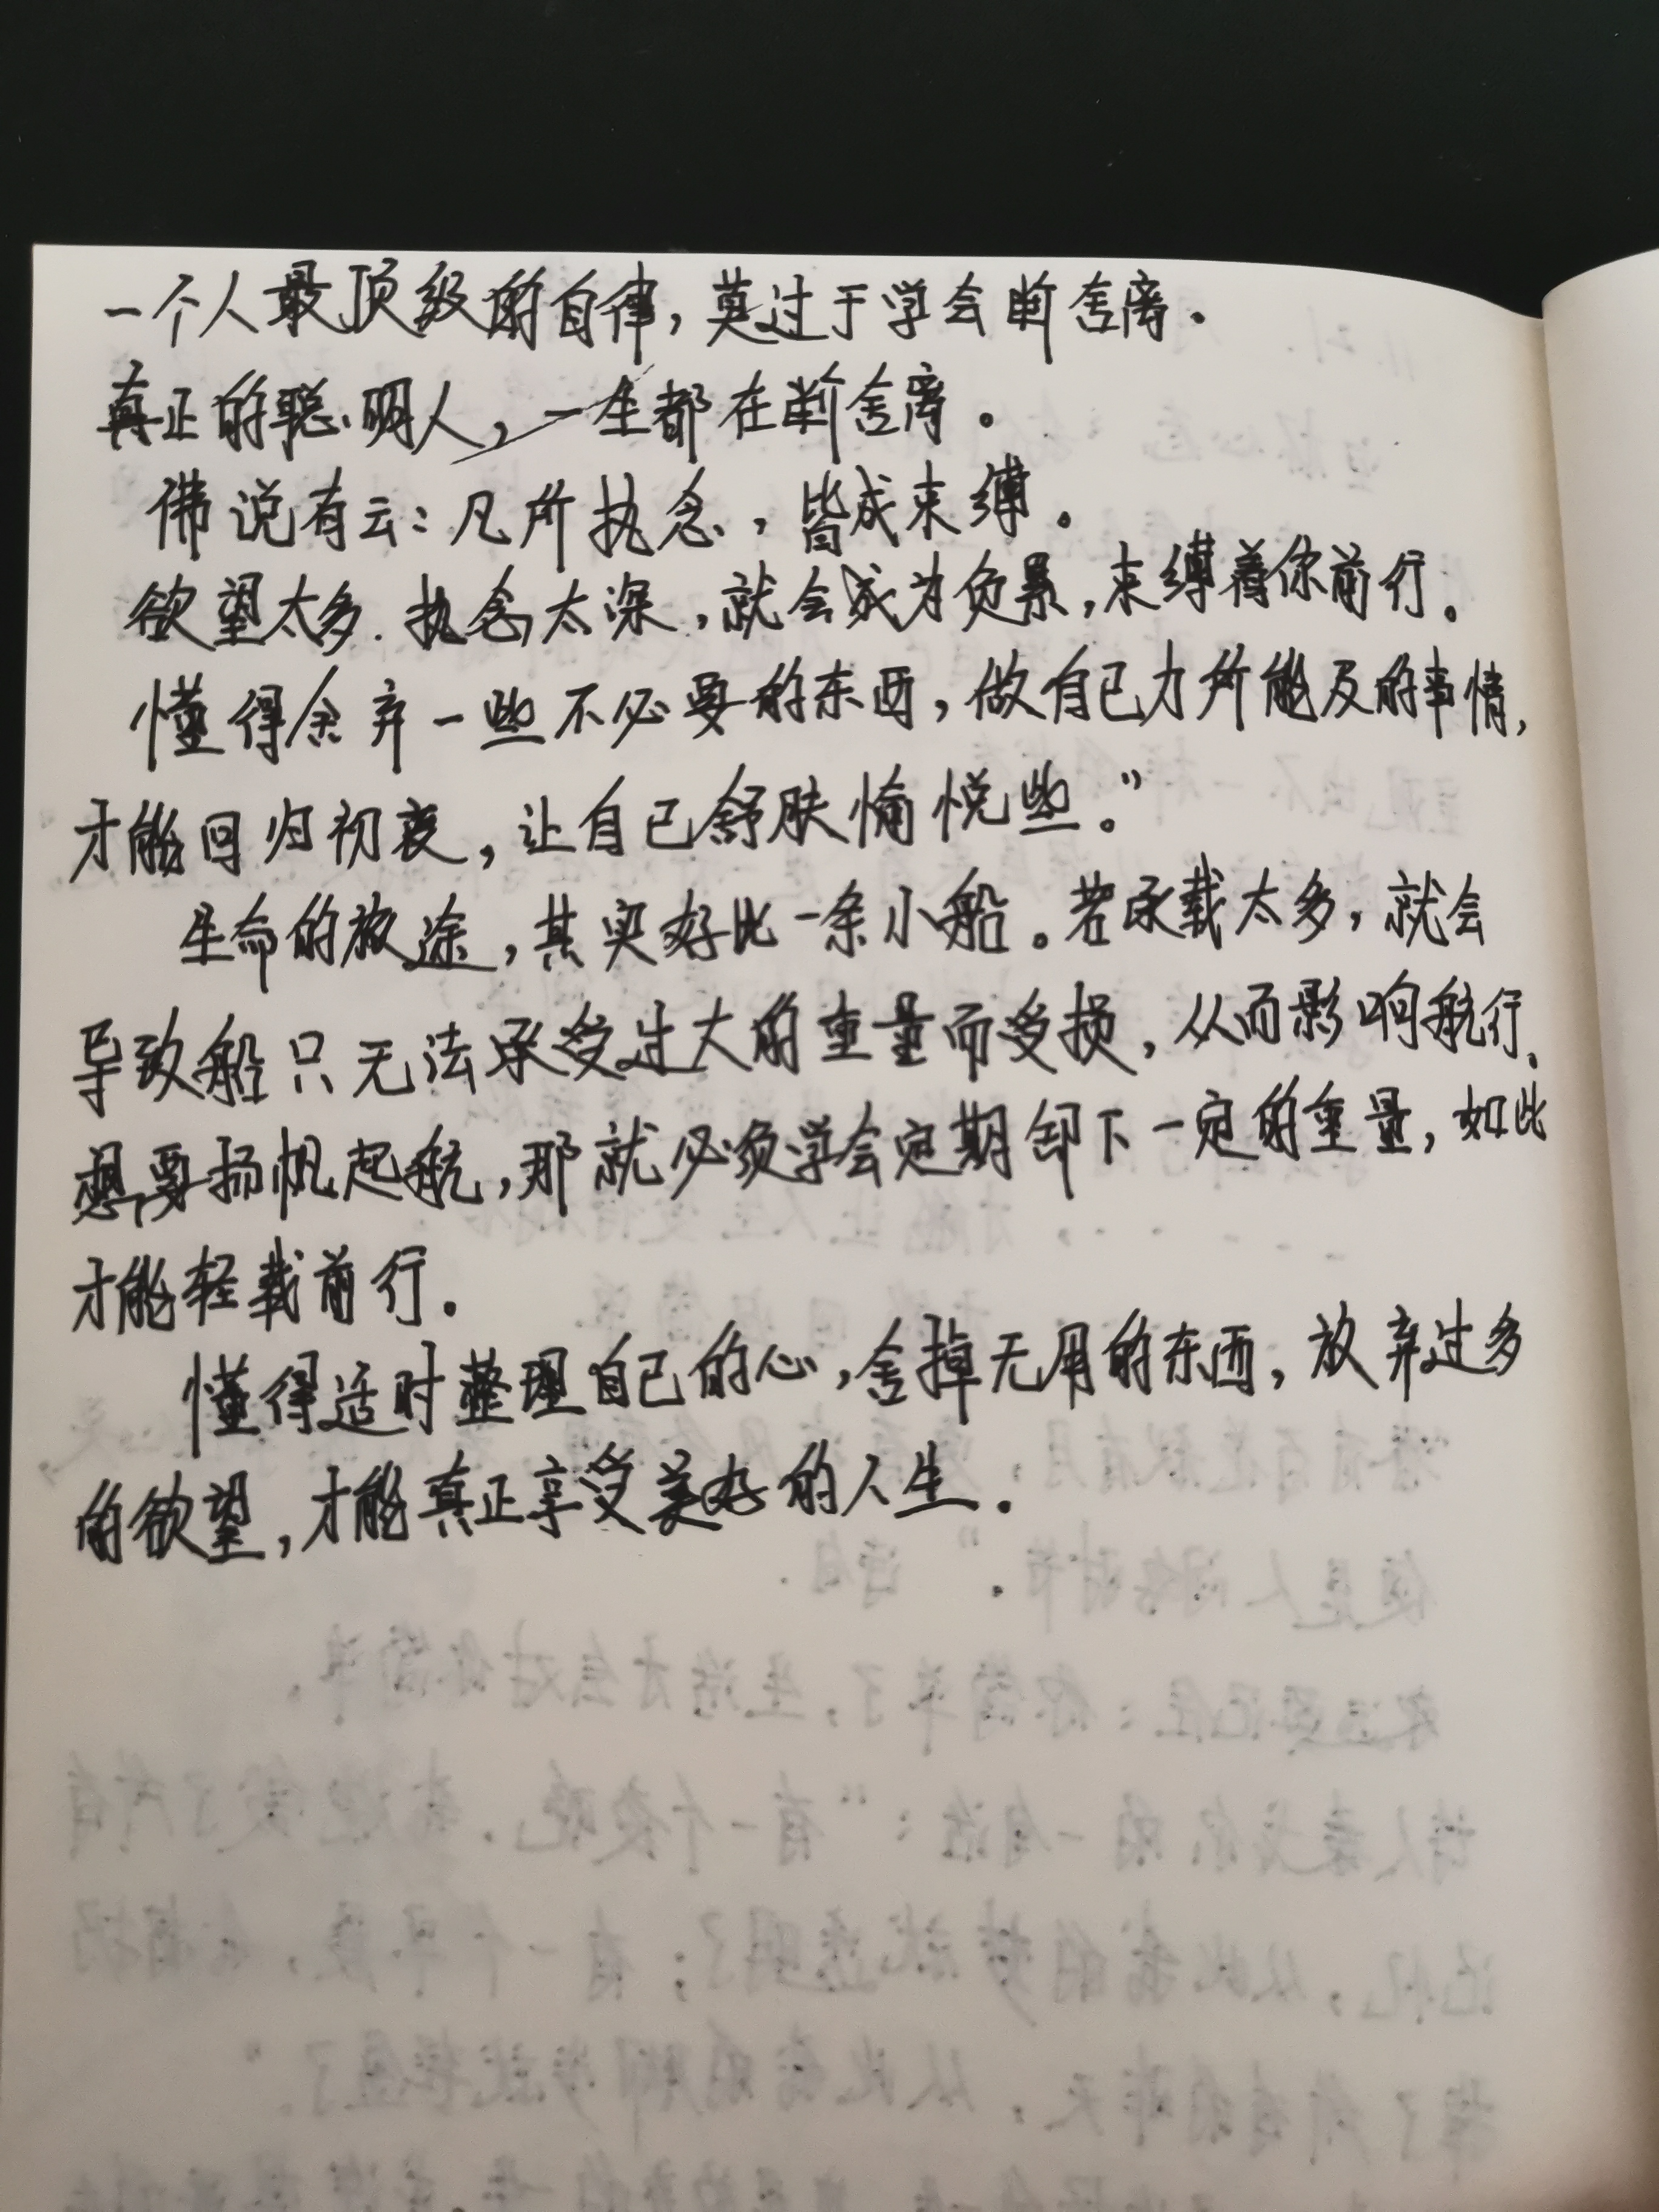 一个人最顶级的自律，莫过于学会断舍离。
真正的聪明人，一生都在断舍离。
佛说有云：凡所执念，皆成束缚。
欲望太多.执念太深，就会成为负累，束缚着你前行。
懂得舍弃一些不必要的东西，做自己力所能及的事情，
才能回归初衷，让自己舒肤愉悦些。”
生命的旅途，其实好比一条小船。若承载太多，就会
导致船只无法承受过大的重量而受损，从而影响航行、
想要扬帆起航，那就必须学会定期卸下一定的重量，如此
才能轻载前行。
懂得适时整理自己的心，舍掉无用的东西，放弃过多
的欲望，才能真正享受美好的人生。